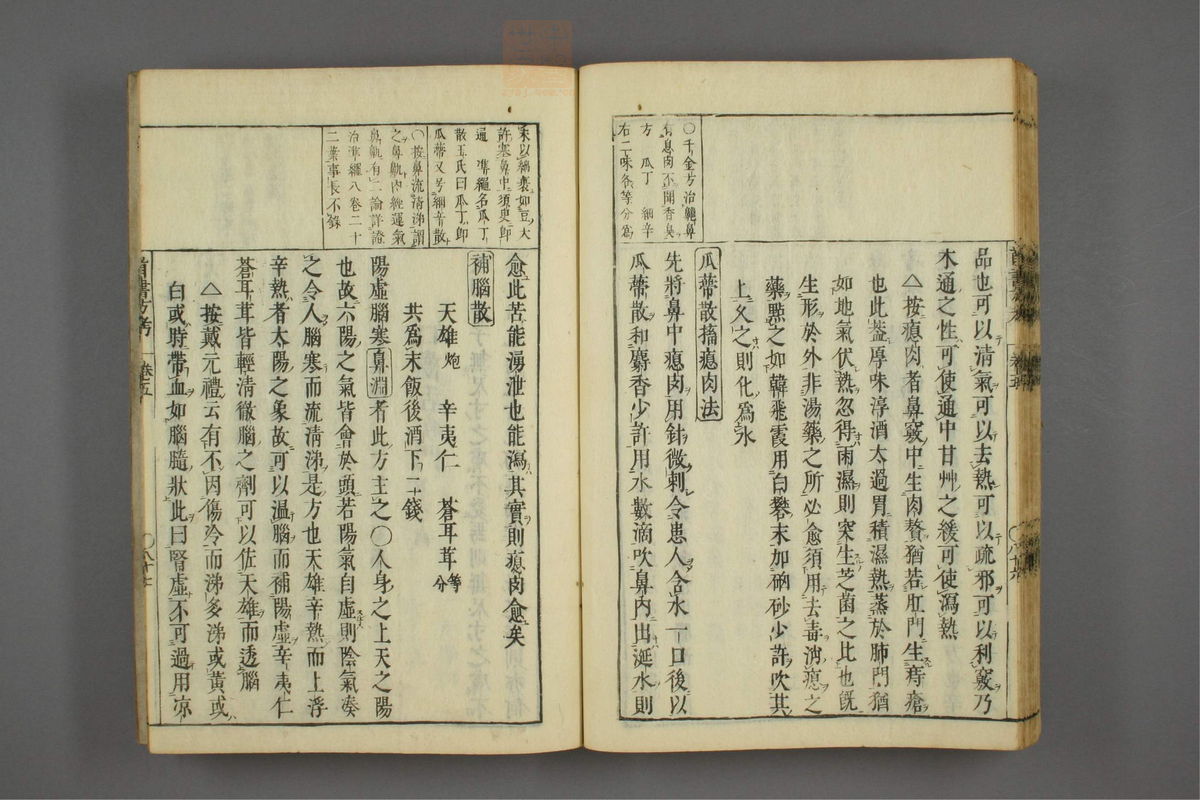 品也可以清氣可以去熱可以疏邪可以利竅乃
木通之性可使通中甘艸之緩可使瀉熱
△按瘜肉者鼻竅中生肉贅猶若肛門生痔瘡
也此蓋厚味淳酒太過胃積濕熱蒸於肺門猶
如地氣伏熱忽得雨濕則突生芝菌之比也既
生形於外非湯藥之所必愈須用去毒消瘜之
藥點之如韓飛霞用白礬末加硇砂少許吹其
上久之則化爲水
瓜蔕散搐瘜肉法
先將鼻中瘜肉用針微刺令患人含水一口後以
瓜蔕散和麝香少許用水數滴吹鼻內出涎水則
〇千金方治齆鼻
有息肉不聞香臭
方 瓜丁 細辛
右二味各等分爲
末以綿裹如豆大
許塞鼻中須臾卽
通 準繩名瓜丁
散王氏曰瓜丁卽
瓜蔕又号細辛散
〇按鼻流清涕謂
之鼻鼽內經運氣
鼻鼽有二論詳證
治準繩八卷二十
二葉事長不錄
愈此苦能湧泄也能瀉其實則瘜肉愈矣
補腦散
天雄炮 辛夷仁 蒼耳茸等分
共爲末飯後酒下二錢
陽虛腦塞鼻淵者此方主之〇人身之上天之陽
也故六陽之氣皆會於頭若陽氣自虛則陰氣湊
之令人腦塞而流清涕是方也天雄辛熱而上浮
辛熱者太陽之象故可以溫腦而補陽虛辛夷仁
蒼耳茸皆輕清徹腦之劑可以佐天雄而透腦
△按戴元禮云有不因傷冷而涕多涕或黃或
白或時帶血如腦髓狀此曰腎虛不可過用凉
首書方考 卷五 〇八十七